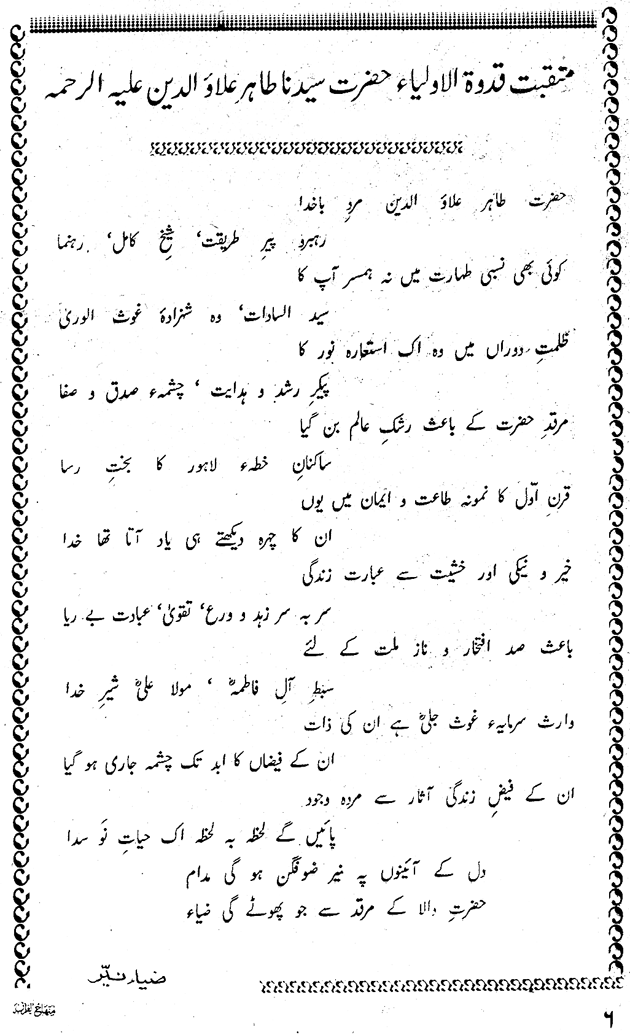 منقبت قدوۃ الاولیاء حضرت سیدنا طاہر علاؤ الدین علیہ الرحمہ
حضرت طاہر علاؤ الدین مردِ باخدا
رہبرو پیرِ طریقت، شیخِ کامل، رہنما
کوئی بھی نسبی طہارت میں نہ ہمسر آپ کا
سید السادات، وہ شہزادۂ غوث الوریٰ
ظلمتِ دوراں میں وہ اک استعارہ نور کا
پیکرِ رشد و ہدایت، چشمۂ صدق و صفا
مرقدِ حضرت کے باعث رشکِ عالم بن گیا
ساکنانِ خطۂ لاہور کا بختِ رسا
قرنِ اوّل کا نمونہ طاعت و ایمان میں یوں
ان کا چہرہ دیکھتے ہی یاد آتا تھا خدا
خیر و نیکی اور خشیت سے عبارت زندگی
سر بہ سر زہد و ورع، تقویٰ، عبادت بے ریا
باعث صد افتخار و ناز ملت کے لئے
سبطِ آلِ فاطمہؓ، مولا علیؓ شیرِ خدا
وارث سرمایۂ غوث جلیؓ ہے ان کی ذات
ان کے فیضاں کا ابد تک چشمہ جاری ہو گیا
ان کے فیضِ زندگی آثار سے مردہ وجود
پائیں گے لحظہ بہ لحظہ اک حیاتِ نَو سدا
دل کے آئینوں پہ نیر ضوفگن ہو گی مدام
حضرتِ والا کے مرقد سے جو پھوٹے گی ضیاء
ضیاء نیّر
منہاج القرآن
۶